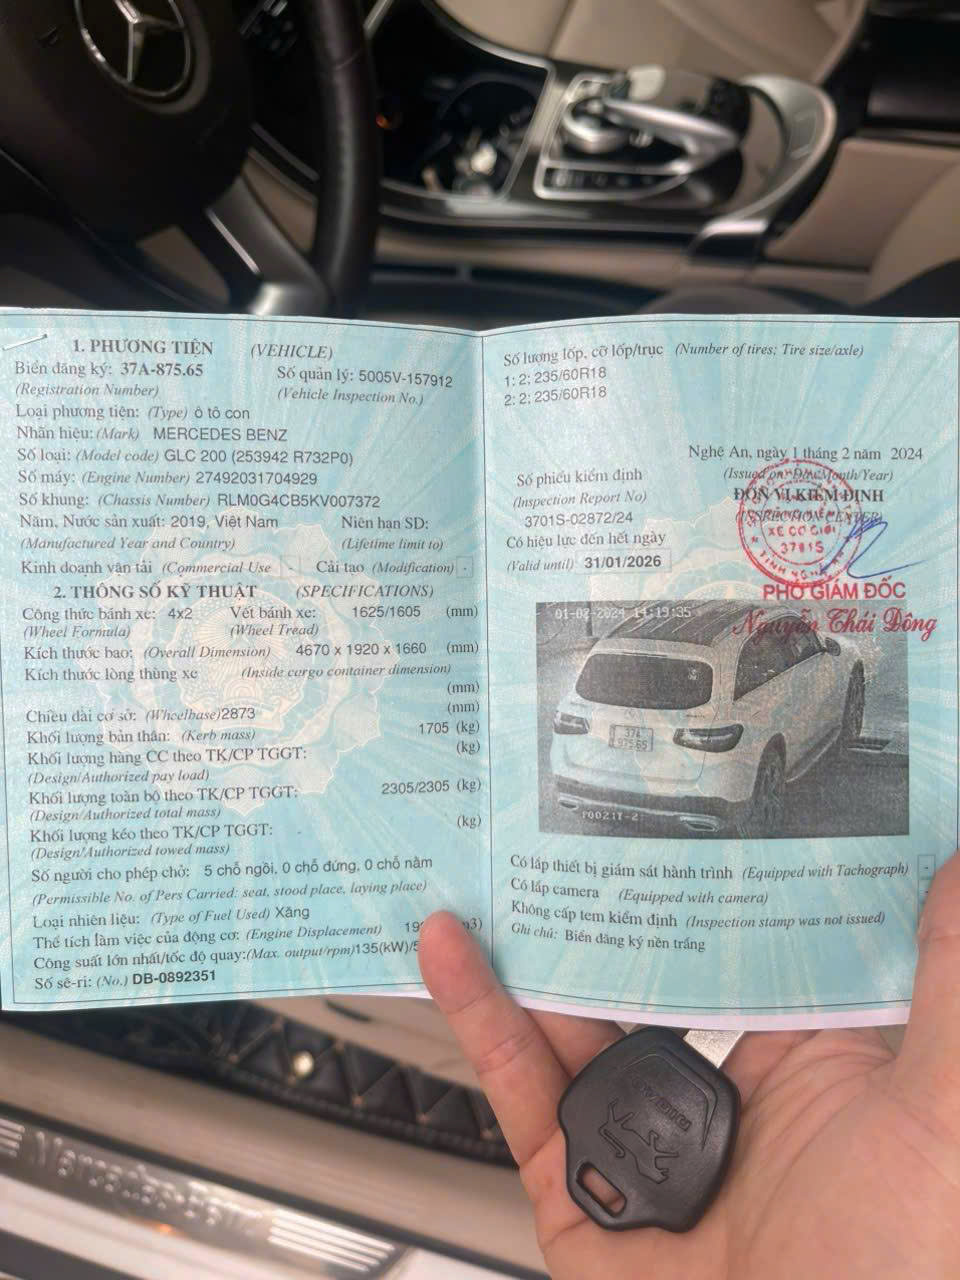 1. PHƯƠNG TIỆN (VEHICLE)
Biển đăng ký: 37A-875.65 Số quản lý: 5005V-157912
(Registration Number) (Vehicle Inspection No.)
Loại phương tiện: (Type) ô tô con
Nhãn hiệu: (Mark) MERCEDES BENZ
Số loại: (Model code) GLC 200 (253942 R732P0)
Số máy: (Engine Number) 27492031704929
Số khung: (Chassis Number) RLM0G4CB5KV007372
Năm, Nước sản xuất: 2019, Việt Nam Niên hạn SD:
(Manufactured Year and Country) (Lifetime limit to)
Kinh doanh vận tải (Commercial Use - Cải tạo (Modification) -
2. THÔNG SỐ KỸ THUẬT (SPECIFICATIONS)
Công thức bánh xe: 4x2 Vết bánh xe: 1625/1605 (mm)
(Wheel Formula) (Wheel Tread)
Kích thước bao: (Overall Dimension) 4670 x 1920 x 1660 (mm)
Kích thước lòng thùng xe (Inside cargo container dimension)
(mm)
Chiều dài cơ sở: (Wheelbase) 2873 (mm)
Khối lượng bản thân: (Kerb mass) 1705 (kg)
Khối lượng hàng CC theo TK/CP TGGT: (kg)
(Design/Authorized pay load)
Khối lượng toàn bộ theo TK/CP TGGT: 2305/2305 (kg)
(Design/Authorized total mass)
Khối lượng kéo theo TK/CP TGGT: (kg)
(Design/Authorized towed mass)
Số người cho phép chở: 5 chỗ ngồi, 0 chỗ đứng, 0 chỗ nằm
(Permissible No. of Pers Carried: seat, stood place, laying place)
Loại nhiên liệu: (Type of Fuel Used) Xăng
Thể tích làm việc của động cơ: (Engine Displacement) 19
Công suất lớn nhất/tốc độ quay: (Max. output/rpm) 135(kW)/5
Số sê-ri: (No.) DB-0892351
Số lượng lốp, cỡ lốp/trục (Number of tires; Tire size/axle)
1: 2; 235/60R18
2: 2; 235/60R18
Nghệ An, ngày 1 tháng 2 năm 2024
(Issued on: Day/Month/Year)
Số phiếu kiểm định
(Inspection Report No)
3701S-02872/24
ĐƠN VỊ KIỂM ĐỊNH
(INSPECTION CENTER)
XE CƠ GIỚI
3701S
Có hiệu lực đến hết ngày
(Valid until) 31/01/2026
PHÓ GIÁM ĐỐC
Nguyễn Thái Đông
01-02-2024 14:19:35
37A
875.65
Có lắp thiết bị giám sát hành trình (Equipped with Tachograph) -
Có lắp camera (Equipped with camera) -
Không cấp tem kiểm định (Inspection stamp was not issued)
Ghi chú: Biển đăng ký nền trắng
Mercedes-Benz